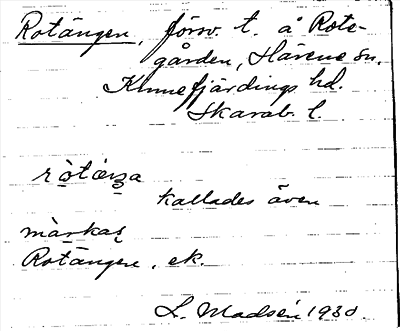 Rotängen, försv. t. å Rote-
gården, Härene sn,
Kinnefjärdings hd.
Skarab. l.
kallades även
Rotängen, ek.
L. Madsén 1930.